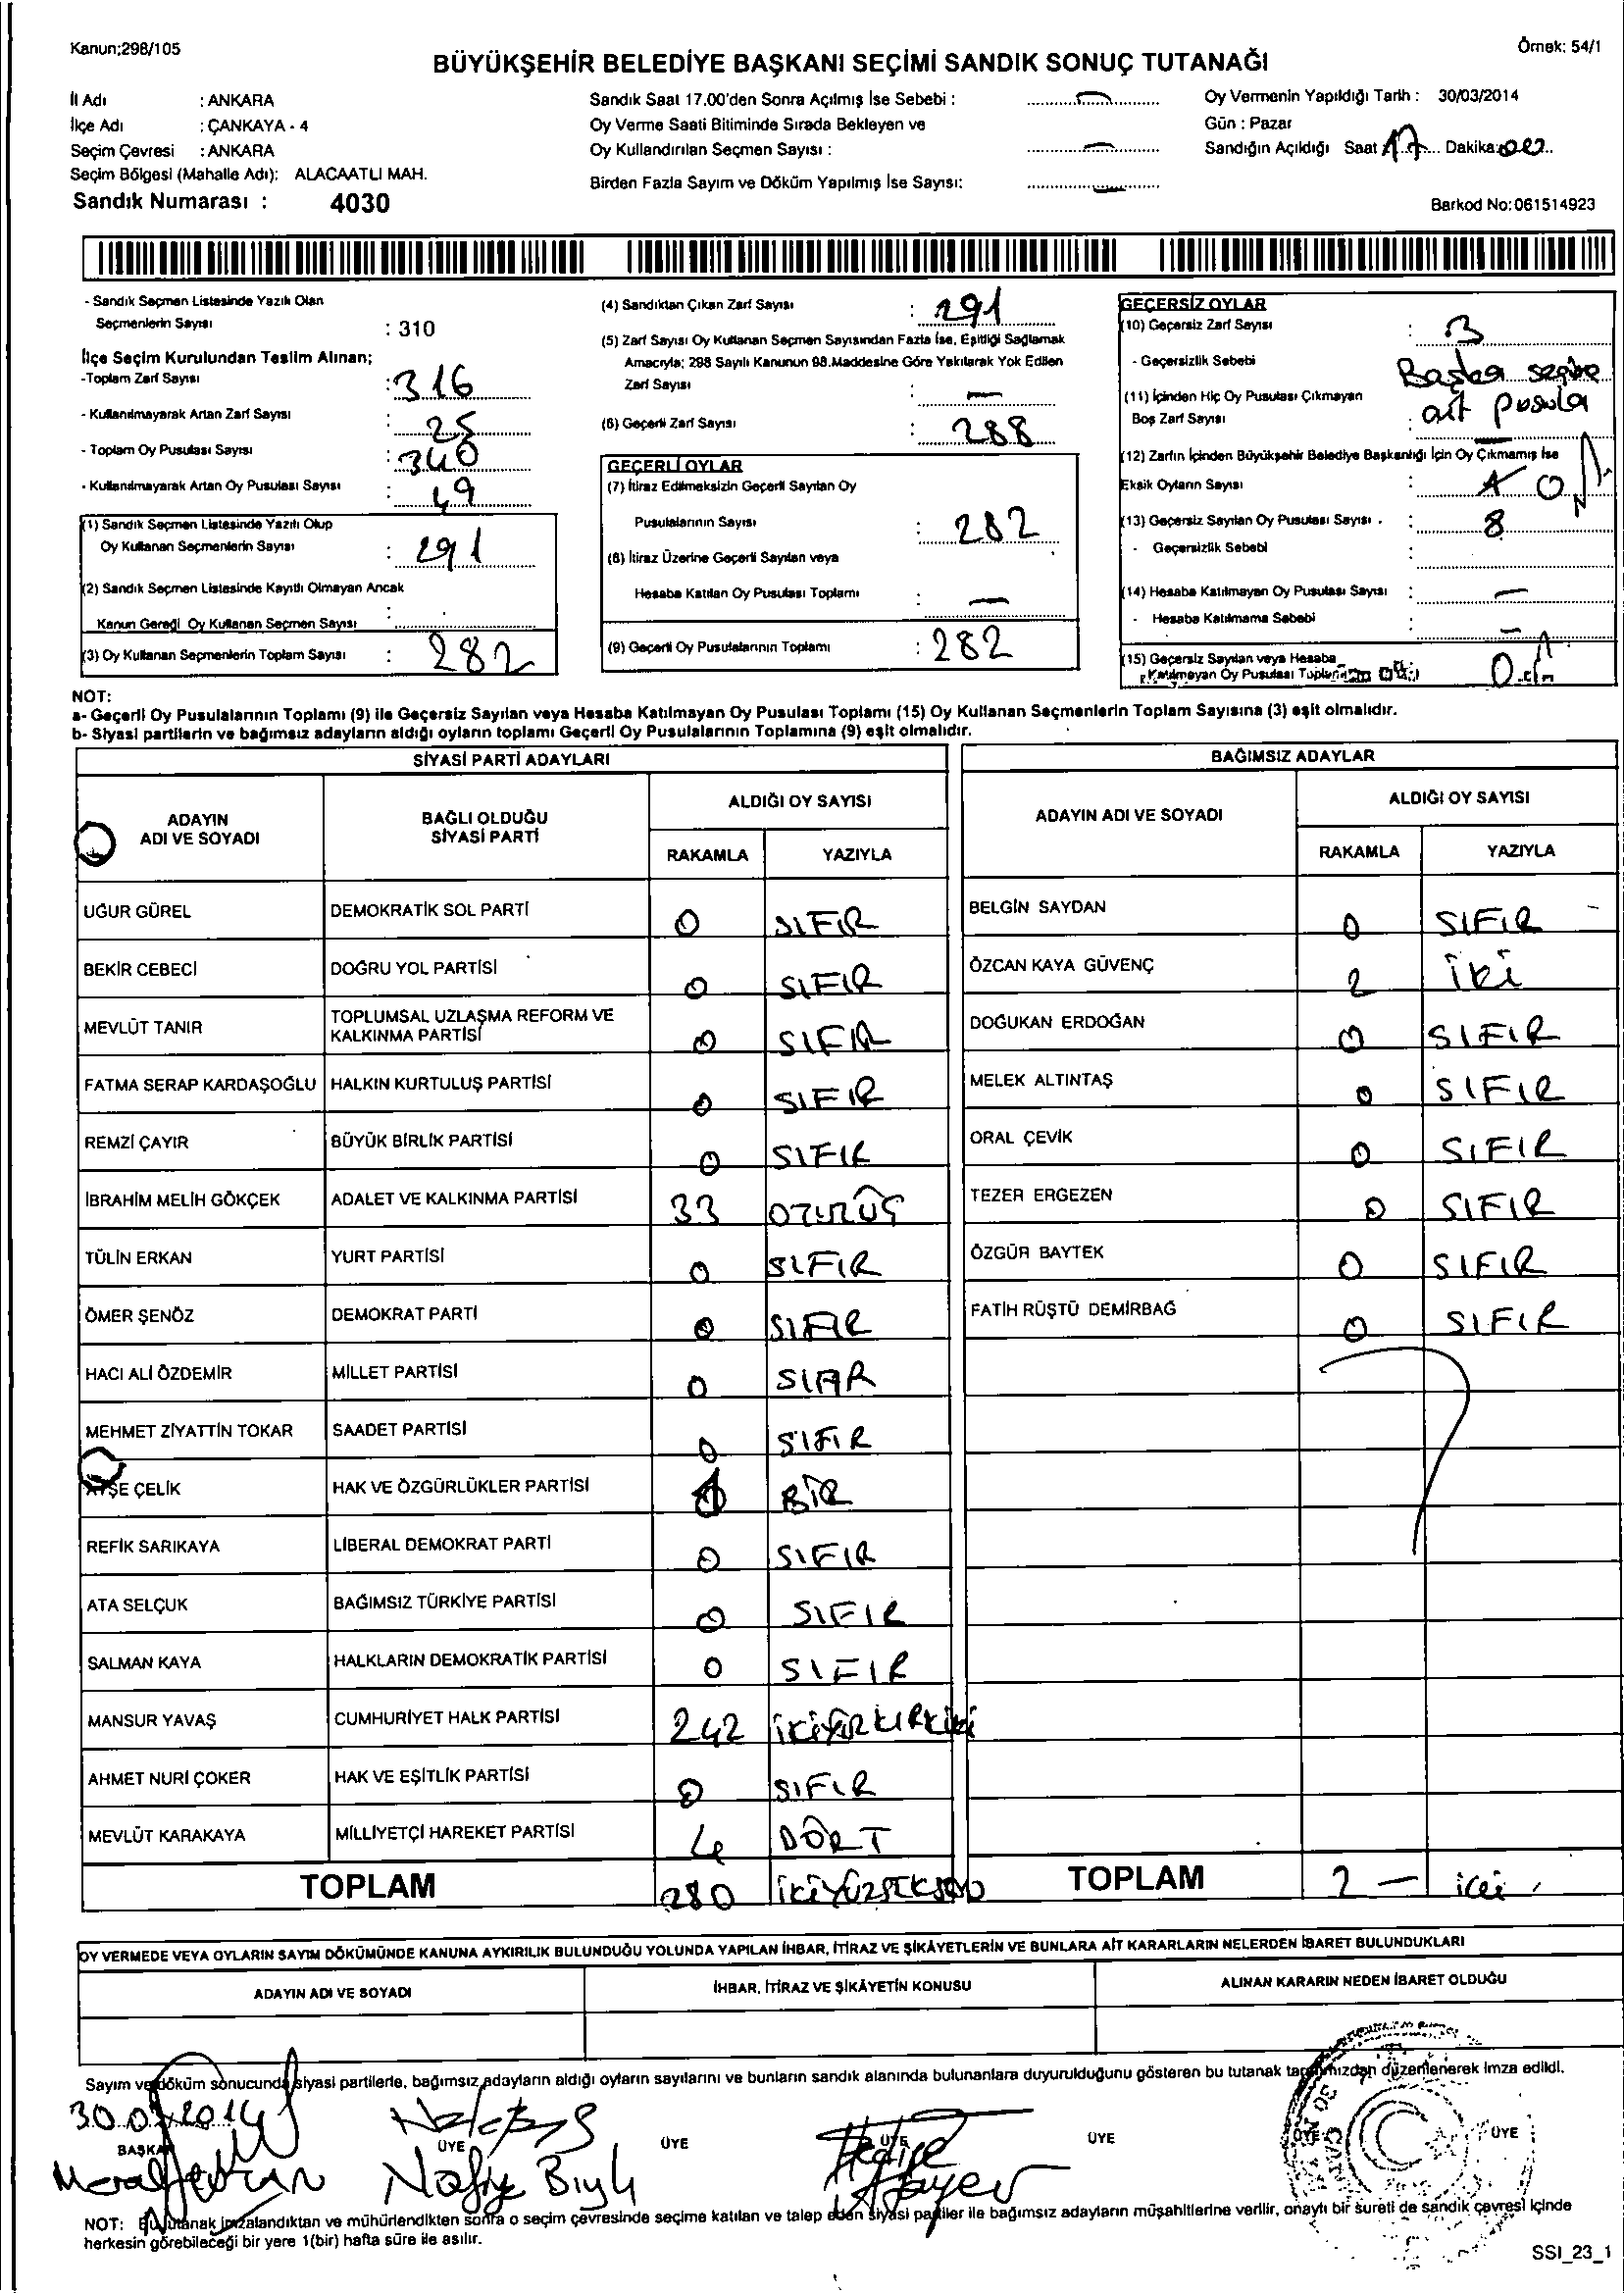 Kanun;298/105
Örnek: 54/1
BÜYÜKŞEHİR BELEDİYE BAŞKANI SEÇİMİ SANDIK SONUÇ TUTANAĞI
İl Adı : ANKARA
İlçe Adı : ÇANKAYA - 4
Seçim Çevresi : ANKARA
Seçim Bölgesi (Mahalle Adı): ALACAATLI MAH.
Sandık Numarası : 4030
Sandık Saat 17.00'den Sonra Açılmış İse Sebebi :
Oy Verme Saati Bitiminde Sırada Bekleyen ve
Oy Kullandırılan Seçmen Sayısı :
Birden Fazla Sayım ve Döküm Yapılmış İse Sayısı:
Oy Vermenin Yapıldığı Tarih : 30/03/2014
Gün : Pazar
Sandığın Açıldığı Saat 17 Dakika:
Barkod No:061514923
- Sandık Seçmen Listesinde Yazılı Olan
Seçmenlerin Sayısı : 310
İlçe Seçim Kurulundan Teslim Alınan;
-Toplam Zarf Sayısı : 316
- Kullanılmayarak Artan Zarf Sayısı : 25
- Toplam Oy Pusulası Sayısı : 340
- Kullanılmayarak Artan Oy Pusulası Sayısı : 49
(1) Sandık Seçmen Listesinde Yazılı Olup
Oy Kullanan Seçmenlerin Sayısı : 291
(2) Sandık Seçmen Listesinde Kayıtlı Olmayan Ancak
Kanun Gereği Oy Kullanan Seçmen Sayısı :
(3) Oy Kullanan Seçmenlerin Toplam Sayısı : 282
(4) Sandıktan Çıkan Zarf Sayısı : 291
(5) Zarf Sayısı Oy Kullanan Seçmen Sayısından Fazla İse, Eşitliği Sağlamak
Amacıyla; 298 Sayılı Kanunun 98.Maddesine Göre Yakılarak Yok Edilen
Zarf Sayısı : —
(6) Geçerli Zarf Sayısı : 288
GEÇERLİ OYLAR
(7) İtiraz Edilmeksizin Geçerli Sayılan Oy
Pusulalarının Sayısı : 282
(8) İtiraz Üzerine Geçerli Sayılan veya
Hesaba Katılan Oy Pusulası Toplamı : —
(9) Geçerli Oy Pusulalarının Toplamı : 282
GEÇERSİZ OYLAR
(10) Geçersiz Zarf Sayısı : 3
- Geçersizlik Sebebi Başka seçime
(11) İçinden Hiç Oy Pusulası Çıkmayan
Boş Zarf Sayısı : ait pusula
(12) Zarfın İçinden Büyükşehir Belediye Başkanlığı İçin Oy Çıkmamış İse
Eksik Oyların Sayısı :
(13) Geçersiz Sayılan Oy Pusulası Sayısı . : 8
- Geçersizlik Sebebi :
(14) Hesaba Katılmayan Oy Pusulası Sayısı : —
- Hesaba Katılmama Sebebi : —
(15) Geçersiz Sayılan veya Hesaba
Katılmayan Oy Pusulası Toplamı
NOT:
a- Geçerli Oy Pusulalarının Toplamı (9) ile Geçersiz Sayılan veya Hesaba Katılmayan Oy Pusulası Toplamı (15) Oy Kullanan Seçmenlerin Toplam Sayısına (3) eşit olmalıdır.
b- Siyasi partilerin ve bağımsız adayların aldığı oyların toplamı Geçerli Oy Pusulalarının Toplamına (9) eşit olmalıdır.
SİYASİ PARTİ ADAYLARI
ADAYIN ADI VE SOYADI
BAĞLI OLDUĞU SİYASİ PARTİ
ALDIĞI OY SAYISI
RAKAMLA YAZIYLA
UĞUR GÜREL DEMOKRATİK SOL PARTİ 0 SIFIR
BEKİR CEBECİ DOĞRU YOL PARTİSİ 0 SIFIR
MEVLÜT TANIR TOPLUMSAL UZLAŞMA REFORM VE KALKINMA PARTİSİ 0 SIFIR
FATMA SERAP KARDAŞOĞLU HALKIN KURTULUŞ PARTİSİ 0 SIFIR
REMZİ ÇAYIR BÜYÜK BİRLİK PARTİSİ 0 SIFIR
İBRAHİM MELİH GÖKÇEK ADALET VE KALKINMA PARTİSİ 33 OTUZÜÇ
TÜLİN ERKAN YURT PARTİSİ 0 SIFIR
ÖMER ŞENÖZ DEMOKRAT PARTİ 0 SIFIR
HACI ALİ ÖZDEMİR MİLLET PARTİSİ 0 SIFIR
MEHMET ZİYATTİN TOKAR SAADET PARTİSİ 0 SIFIR
AYŞE ÇELİK HAK VE ÖZGÜRLÜKLER PARTİSİ 1 BİR
REFİK SARIKAYA LİBERAL DEMOKRAT PARTİ 0 SIFIR
ATA SELÇUK BAĞIMSIZ TÜRKİYE PARTİSİ 0 SIFIR
SALMAN KAYA HALKLARIN DEMOKRATİK PARTİSİ 0 SIFIR
MANSUR YAVAŞ CUMHURİYET HALK PARTİSİ 242 İKİYÜZKIRKİKİ
AHMET NURİ ÇOKER HAK VE EŞİTLİK PARTİSİ 0 SIFIR
MEVLÜT KARAKAYA MİLLİYETÇİ HAREKET PARTİSİ 4 DÖRT
TOPLAM 280 İKİYÜZSEKSEN
BAĞIMSIZ ADAYLAR
ADAYIN ADI VE SOYADI
ALDIĞI OY SAYISI
RAKAMLA YAZIYLA
BELGİN SAYDAN 0 SIFIR
ÖZCAN KAYA GÜVENÇ 2 İki
DOĞUKAN ERDOĞAN 0 SIFIR
MELEK ALTINTAŞ 0 SIFIR
ORAL ÇEVİK 0 SIFIR
TEZER ERGEZEN 0 SIFIR
ÖZGÜR BAYTEK 0 SIFIR
FATİH RÜŞTÜ DEMİRBAĞ 0 SIFIR
TOPLAM 2 — iki
OY VERMEDE VEYA OYLARIN SAYIM DÖKÜMÜNDE KANUNA AYKIRILIK BULUNDUĞU YOLUNDA YAPILAN İHBAR, İTİRAZ VE ŞİKÂYETLERİN VE BUNLARA AİT KARARLARIN NELERDEN İBARET BULUNDUKLARI
ADAYIN ADI VE SOYADI
İHBAR, İTİRAZ VE ŞİKÂYETİN KONUSU
ALINAN KARARIN NEDEN İBARET OLDUĞU
Sayım ve döküm sonucunda siyasi partilerle, bağımsız adayların aldığı oyların sayılarını ve bunların sandık alanında bulunanlara duyurulduğunu gösteren bu tutanak tarafımızdan düzenlenerek imza edildi.
30.03.2014
BAŞKAN ÜYE ÜYE ÜYE ÜYE ÜYE ÜYE
Nafiye Bıyılı
Hediye
NOT: Bu tutanak imzalandıktan ve mühürlendikten sonra o seçim çevresinde seçime katılan ve talep eden siyasi partiler ile bağımsız adayların müşahitlerine verilir, onaylı bir sureti de sandık çevresi içinde
herkesin görebileceği bir yere 1(bir) hafta süre ile asılır.
SSI_23_1